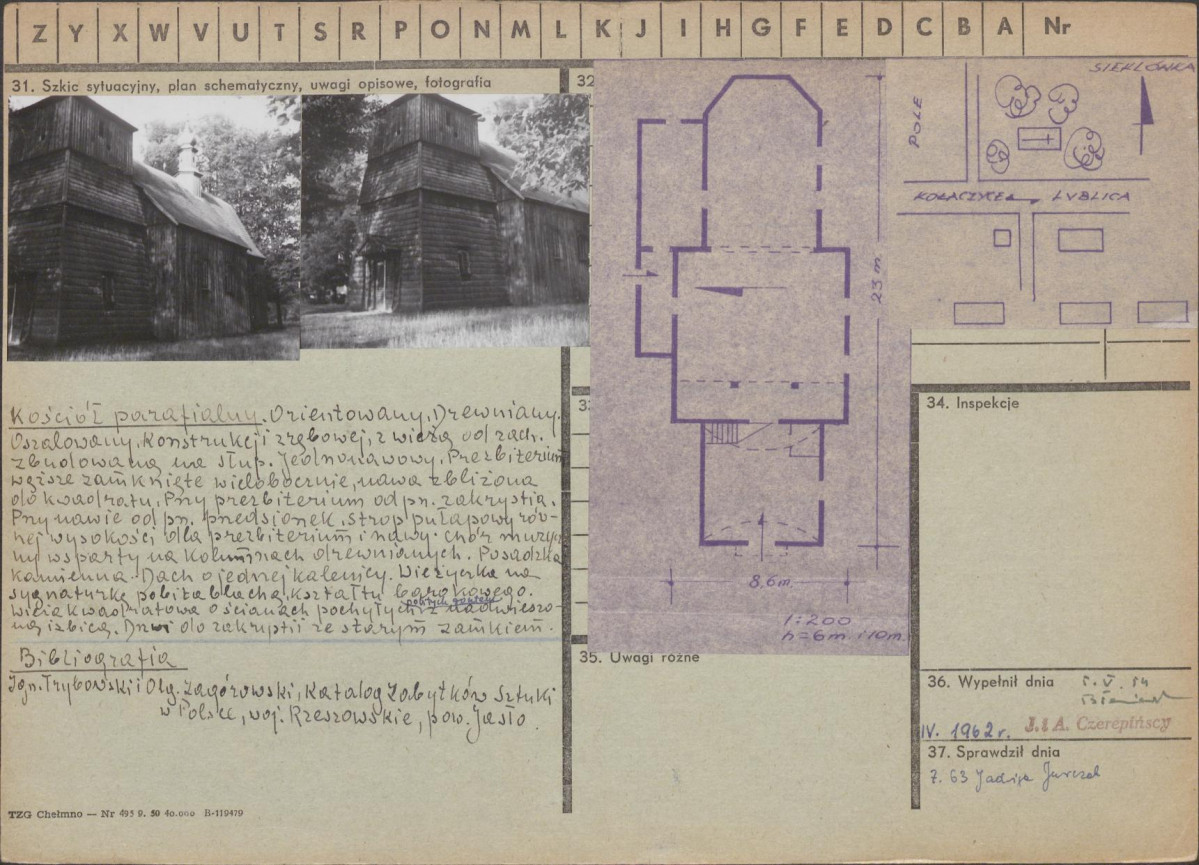 Z Y X W V U T S R P O N M L K J I H G F E D C B A Nr
31. Szkic sytuacyjny, plan schematyczny, uwagi opisowe, fotografia
32
Kościół parafialny. Orientowany, Drewniany.
Oszalowany, konstrukcji zrębowej, z wieżą od zach.
zbudowaną na słup. Jednonawowy. Prezbiterium
węższe zamknięte wielobocznie, nawa zbliżona
do kwadratu. Przy prezbiterium od pn. zakrystia.
Przy nawie od pn. przedsionek, strop pułapowy rów-
nej wysokości dla prezbiterium i nawy. chór muzycz
ny wsparty na kolumnach drewnianych. Posadzka
kamienna. Dach o jednej kalenicy. Wieżyczka na
sygnaturkę pobita blachą, kształtu barokowego.
Wieża kwadratowa o ścianach pochyłych z nadwieszo-
ną izbicą. Drzwi do zakrystii ze starym zamkiem.
Bibliografia
Ign. Trybowski i Olg. Zagórowski, Katalog Zabytków Sztuki
w Polsce, woj. Rzeszowskie, pow. Jasło.
TZG Chełmno — Nr 495 9. 50 40.000 B-119479
23 m.
8,6m.
1:200
h=6m. i 10m.
SIEKLÓWKA
POLE
KOŁACZYCE
LUBLICA
33
34. Inspekcje
35. Uwagi różne
36. Wypełnił dnia
IV. 1962 r. J. i A. Czerepińscy
37. Sprawdził dnia
7. 63 Jadwiga